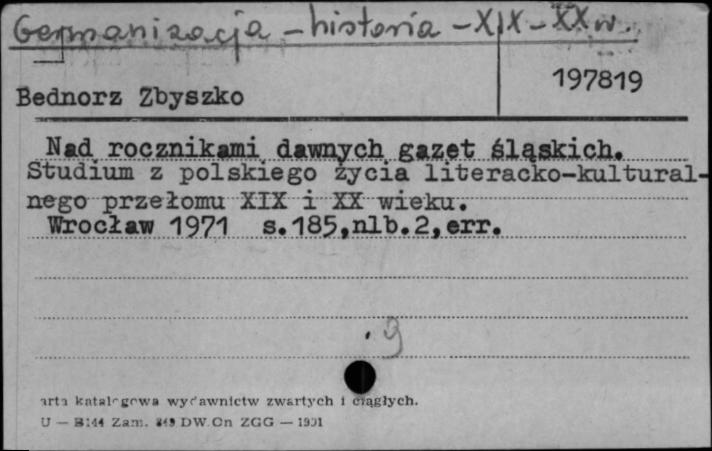 Germanizacja – historia – XIX – XX w.
197819
Bednorz Zbyszko
Nad rocznikami dawnych gazet śląskich.
Studium z polskiego życia literacko-kultural-
nego przełomu XIX i XX wieku.
Wrocław 1971 s.185,nlb.2,err.
9
arta katalogowa wydawnictw zwartych i ciągłych.
U — B144 Zam. DW.On ZGG —